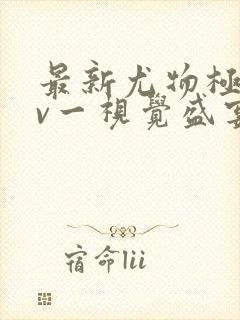 最新尤物極
v一視覺盛宴
宿命lii